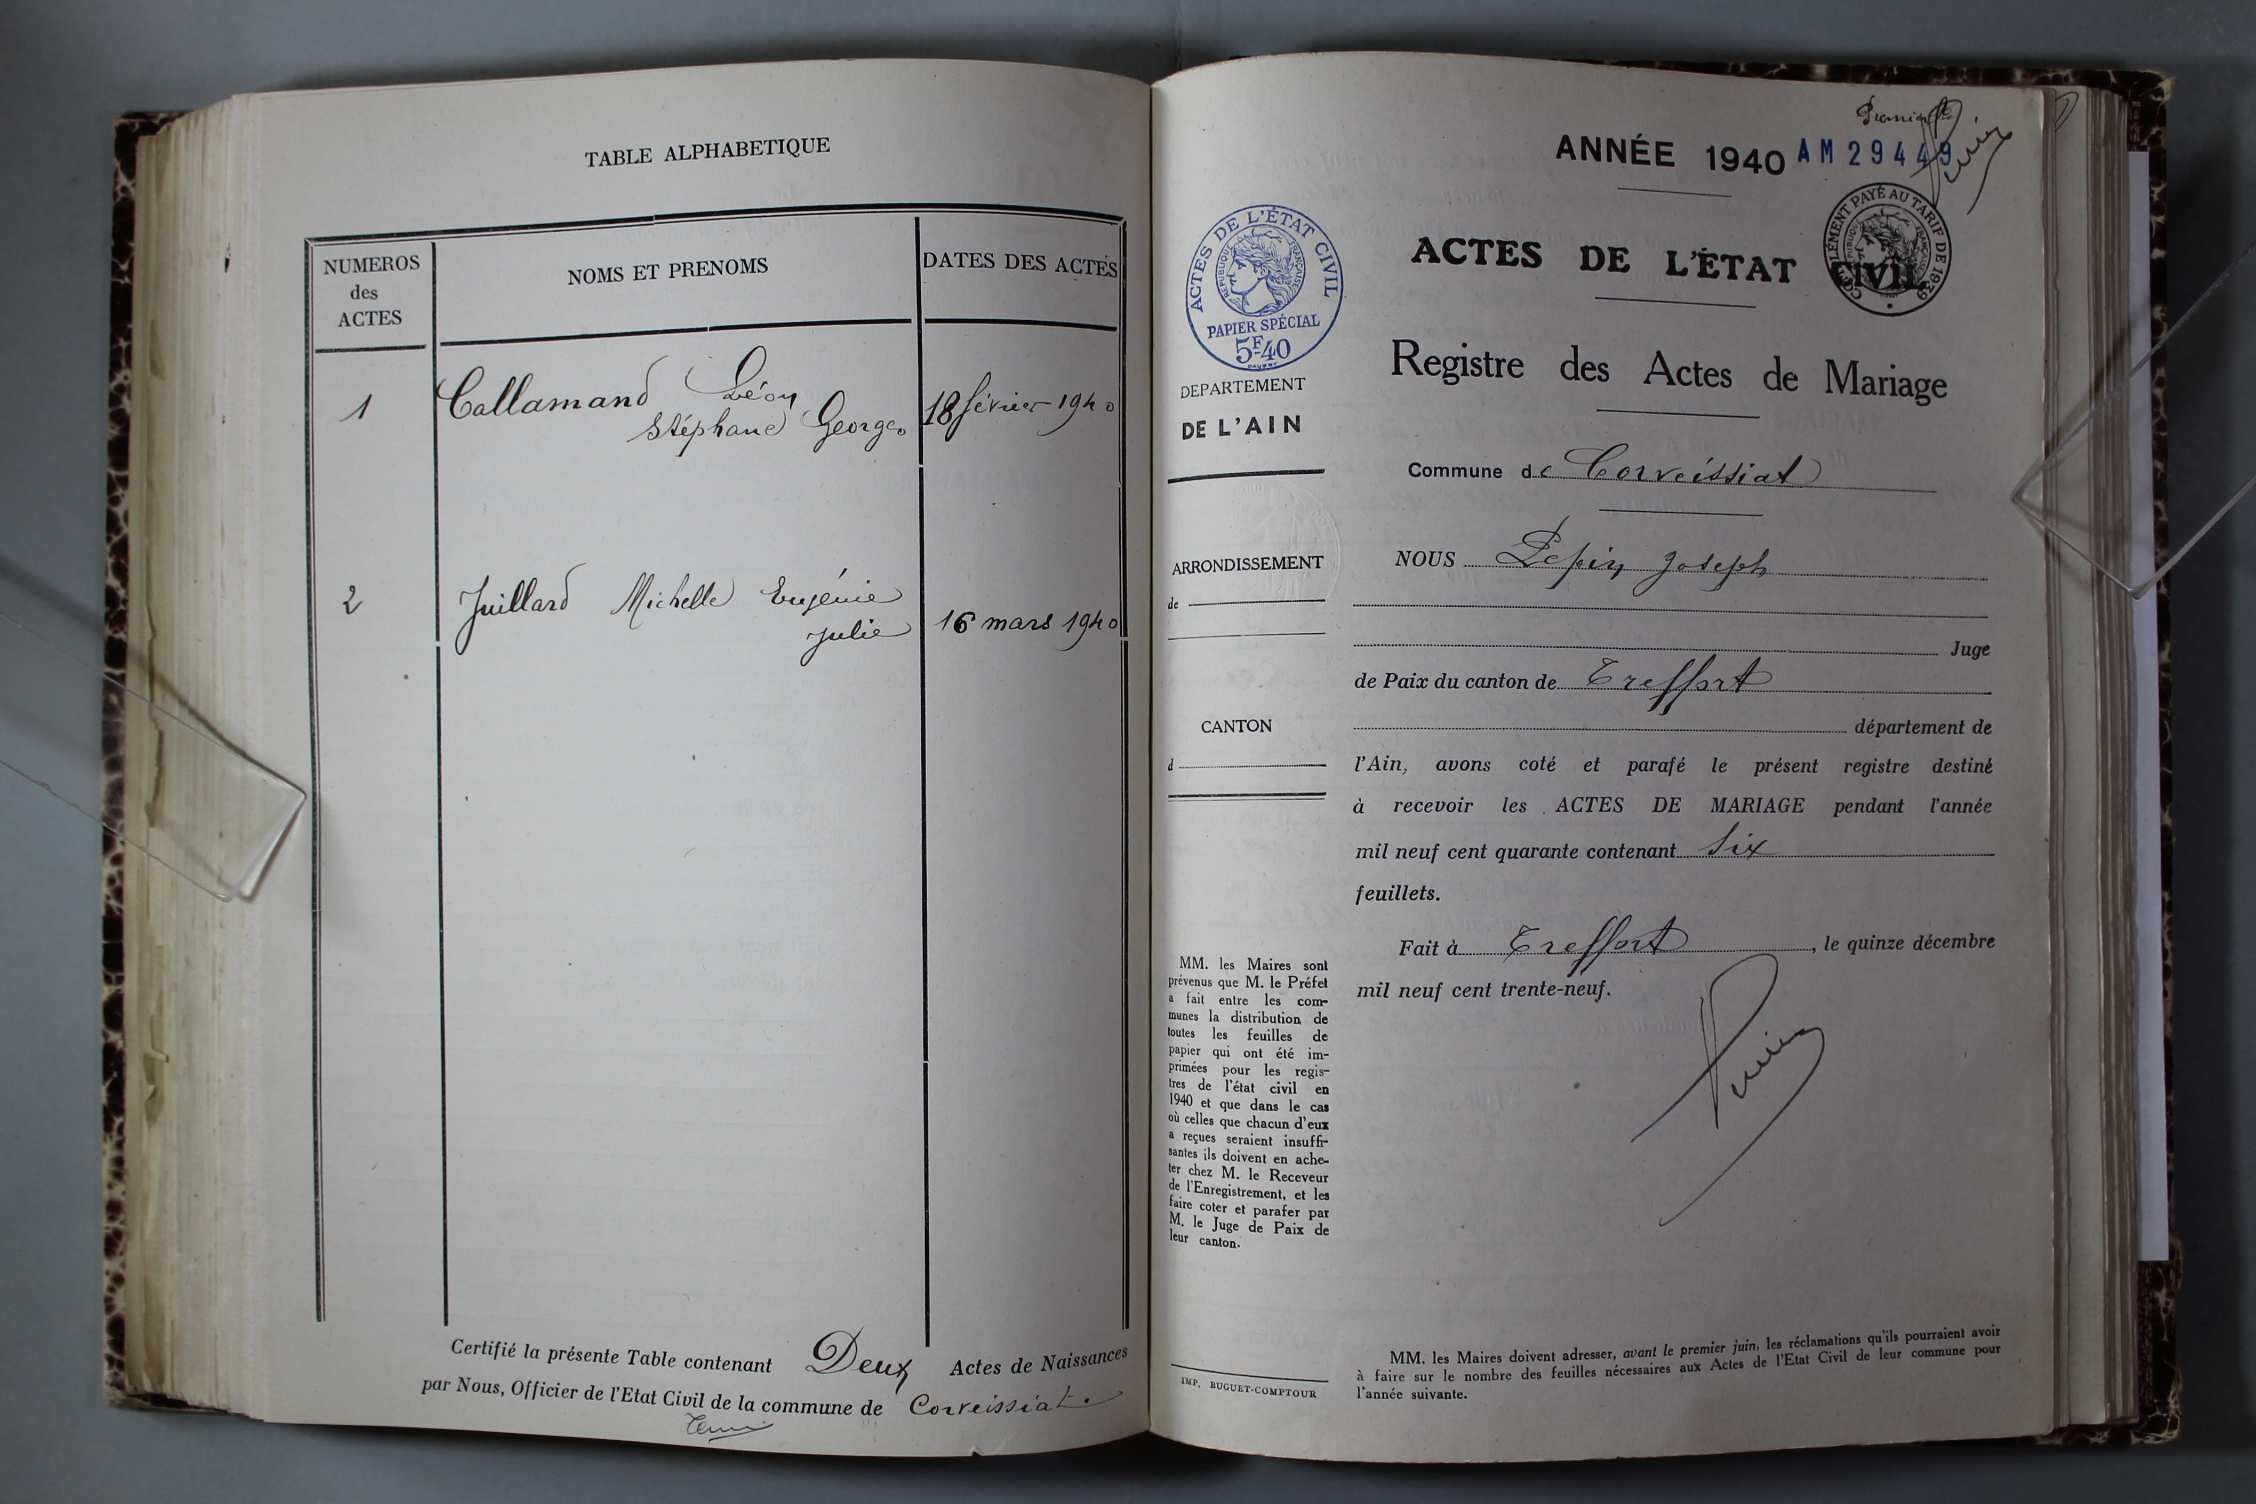 TABLE ALPHABETIQUE
NUMEROS
des
ACTES
NOMS ET PRENOMS
DATES DES ACTES
1
Callamand Léon
Stéphane Georges
18 février 1940
2
Juillard Michelle Eugénie
Julie
16 mars 1940
Certifié la présente Table contenant Deux Actes de Naissances
par Nous, Officier de l'Etat Civil de la commune de Corveissiat.
Premier
ANNÉE 1940 AM 29449
ACTES DE L'ÉTAT CIVIL
RÉPUBLIQUE FRANÇAISE
PAPIER SPÉCIAL
5F-40
COMPLÉMENT PAYÉ AU TARIF DE 1939
RÉPUBLIQUE FRANÇAISE
ACTES DE L'ÉTAT CIVIL
Registre des Actes de Mariage
DEPARTEMENT
DE L'AIN
ARRONDISSEMENT
de
CANTON
d
MM. les Maires sont
prévenus que M. le Préfet
a fait entre les com-
munes la distribution de
toutes les feuilles de
papier qui ont été im-
primées pour les regis-
tres de l'état civil en
1940 et que dans le cas
où celles que chacun d'eux
a reçues seraient insuffi-
santes ils doivent en ache-
ter chez M. le Receveur
de l'Enregistrement, et les
faire coter et parafer par
M. le Juge de Paix de
leur canton.
IMP. BUGUET-COMPTOUR
Commune de Corveissiat
NOUS Pepin Joseph
Juge
de Paix du canton de Treffort
département de
l'Ain, avons coté et parafé le présent registre destiné
à recevoir les ACTES DE MARIAGE pendant l'année
mil neuf cent quarante contenant Six
feuillets.
Fait à Treffort, le quinze décembre
mil neuf cent trente-neuf.
MM. les Maires doivent adresser, avant le premier juin, les réclamations qu'ils pourraient avoir
à faire sur le nombre des feuilles nécessaires aux Actes de l'Etat Civil de leur commune pour
l'année suivante.